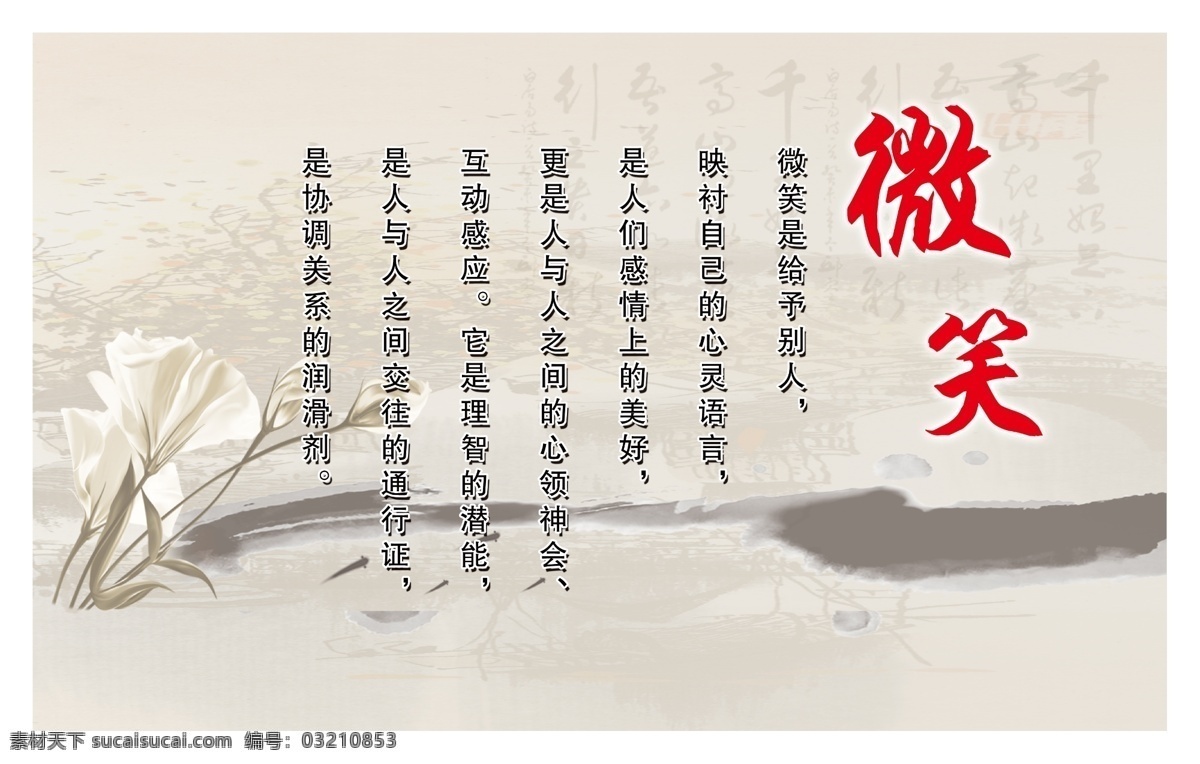 微笑
微笑是给予别人，
映衬自己的心灵语言，
是人们感情上的美好，
更是人与人之间的心领神会、
互动感应。它是理智的潜能，
是人与人之间交往的通行证，
是协调关系的润滑剂。
素材天下 sucaisucai.com 编号：03210853